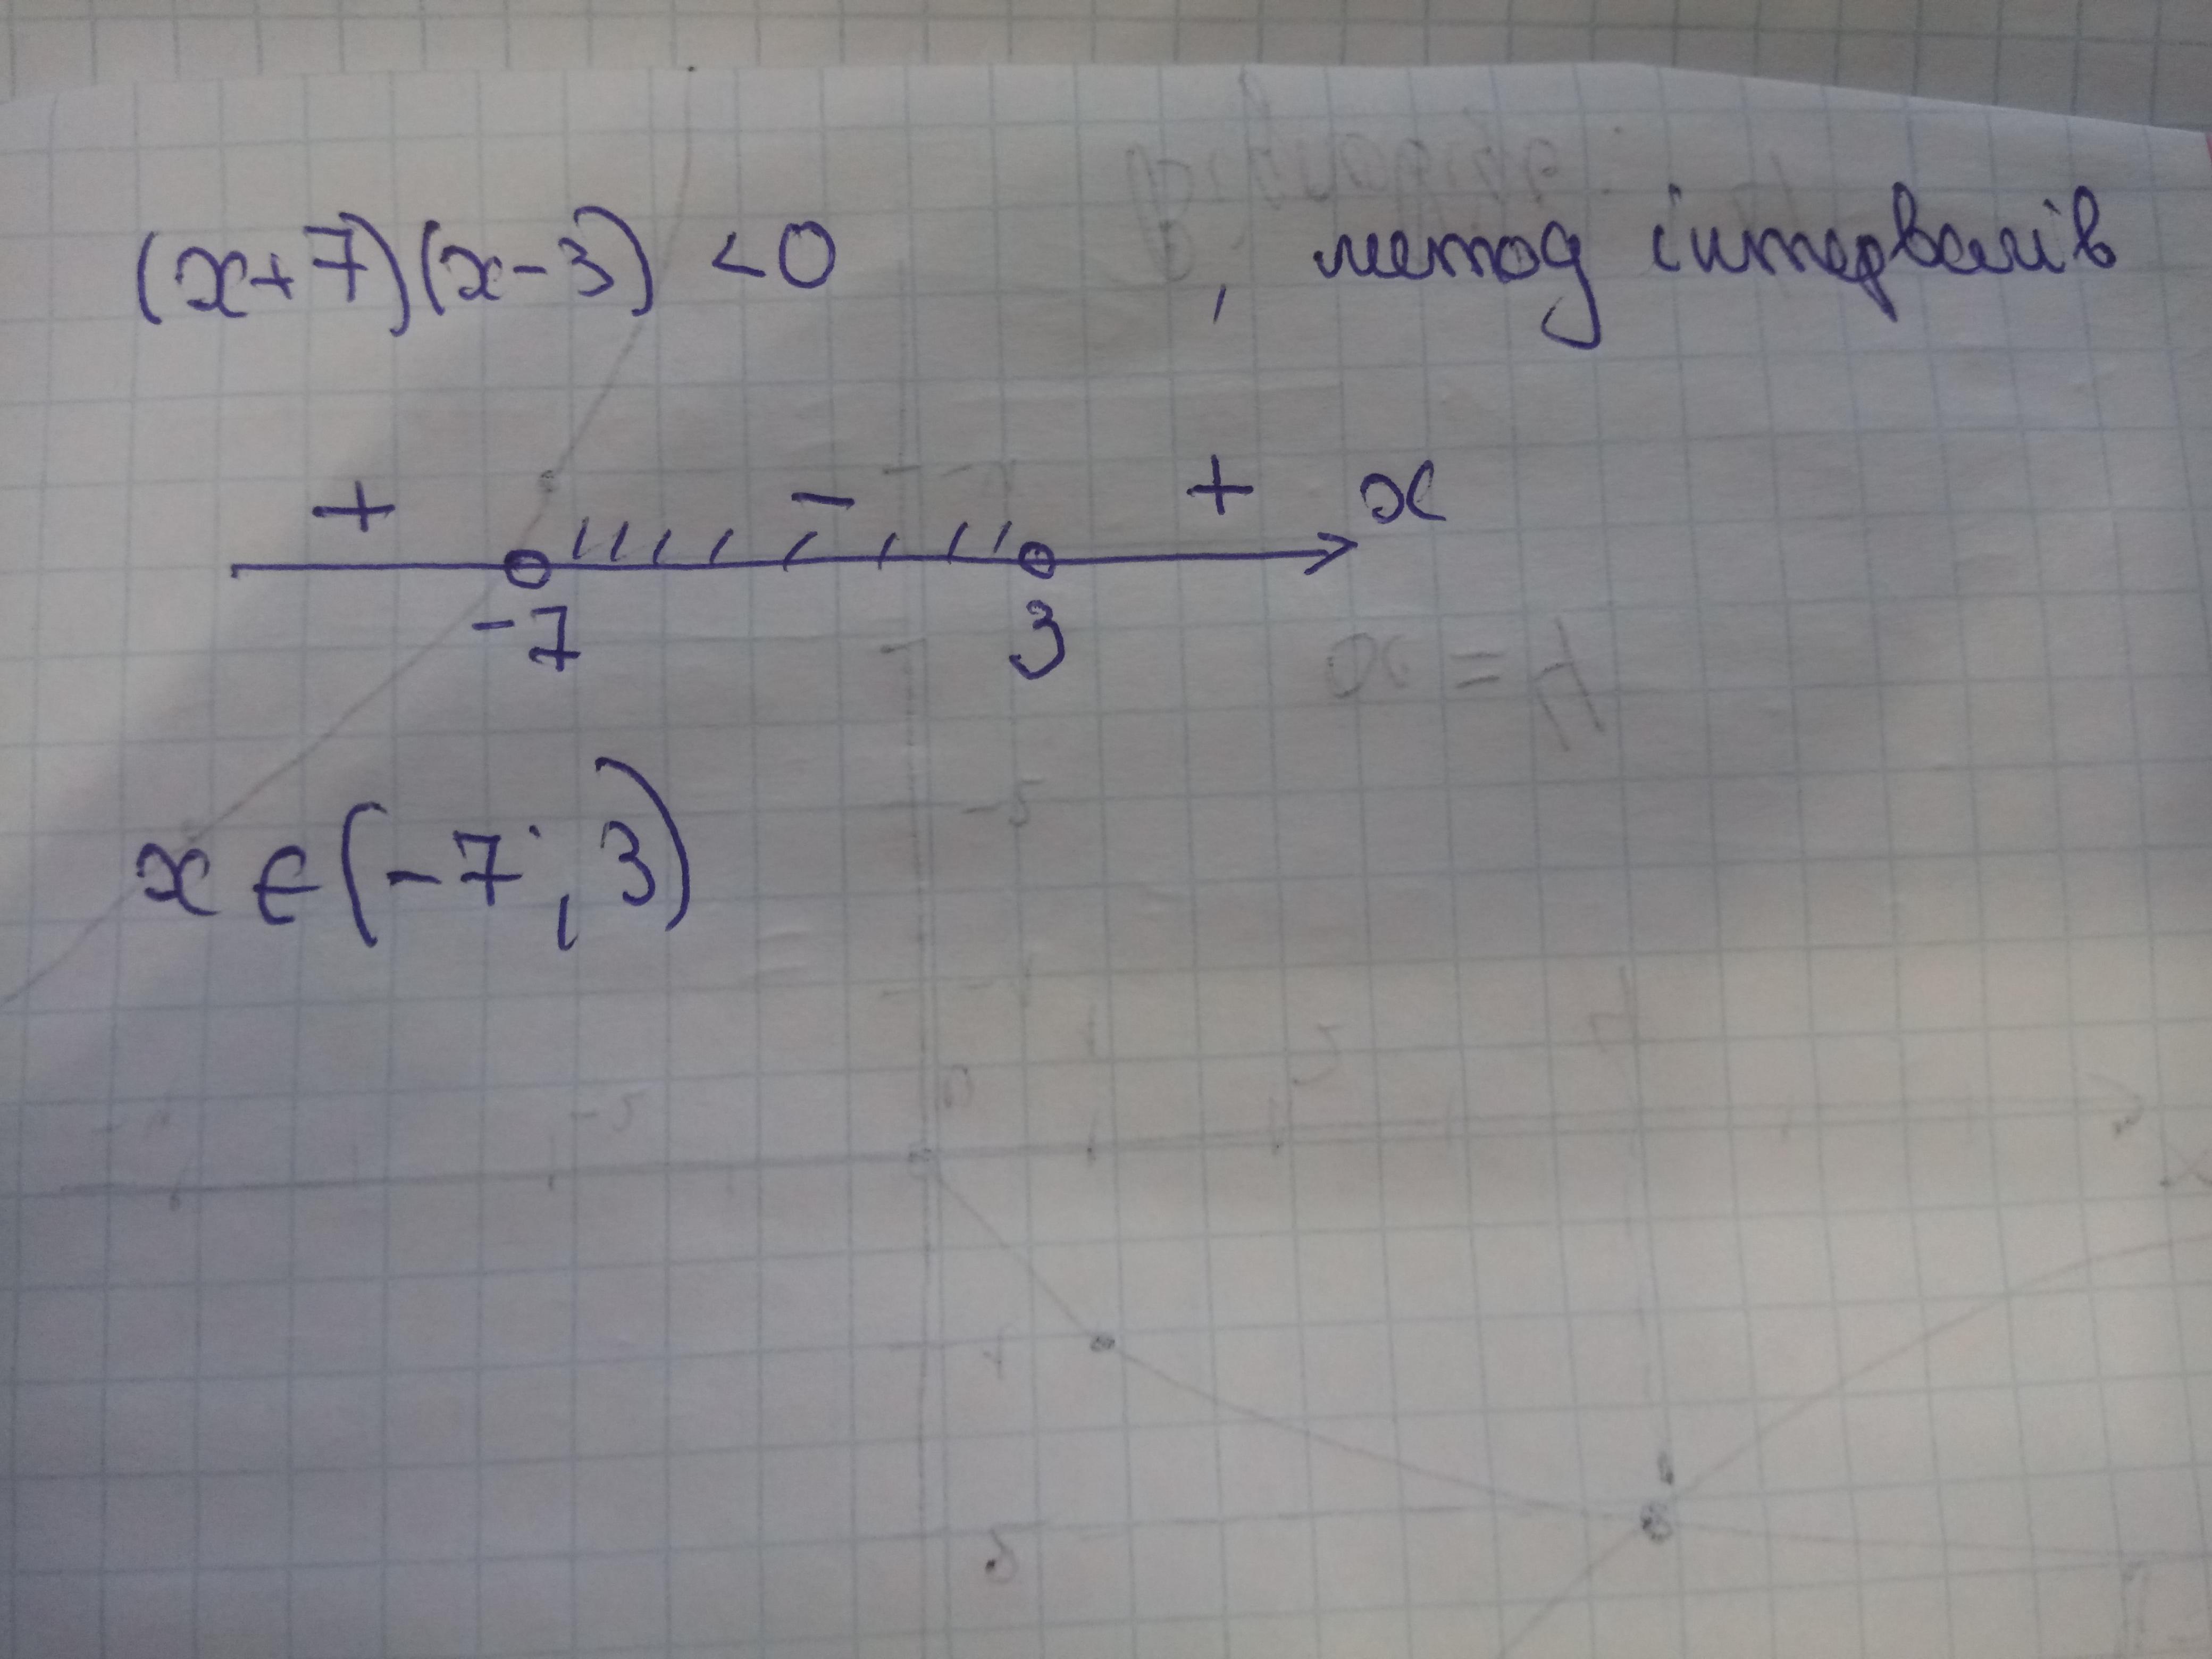 (x+7)(x-3) <0 , метод інтервалів
+ - + x
-7 3
x ∈ (-7; 3)